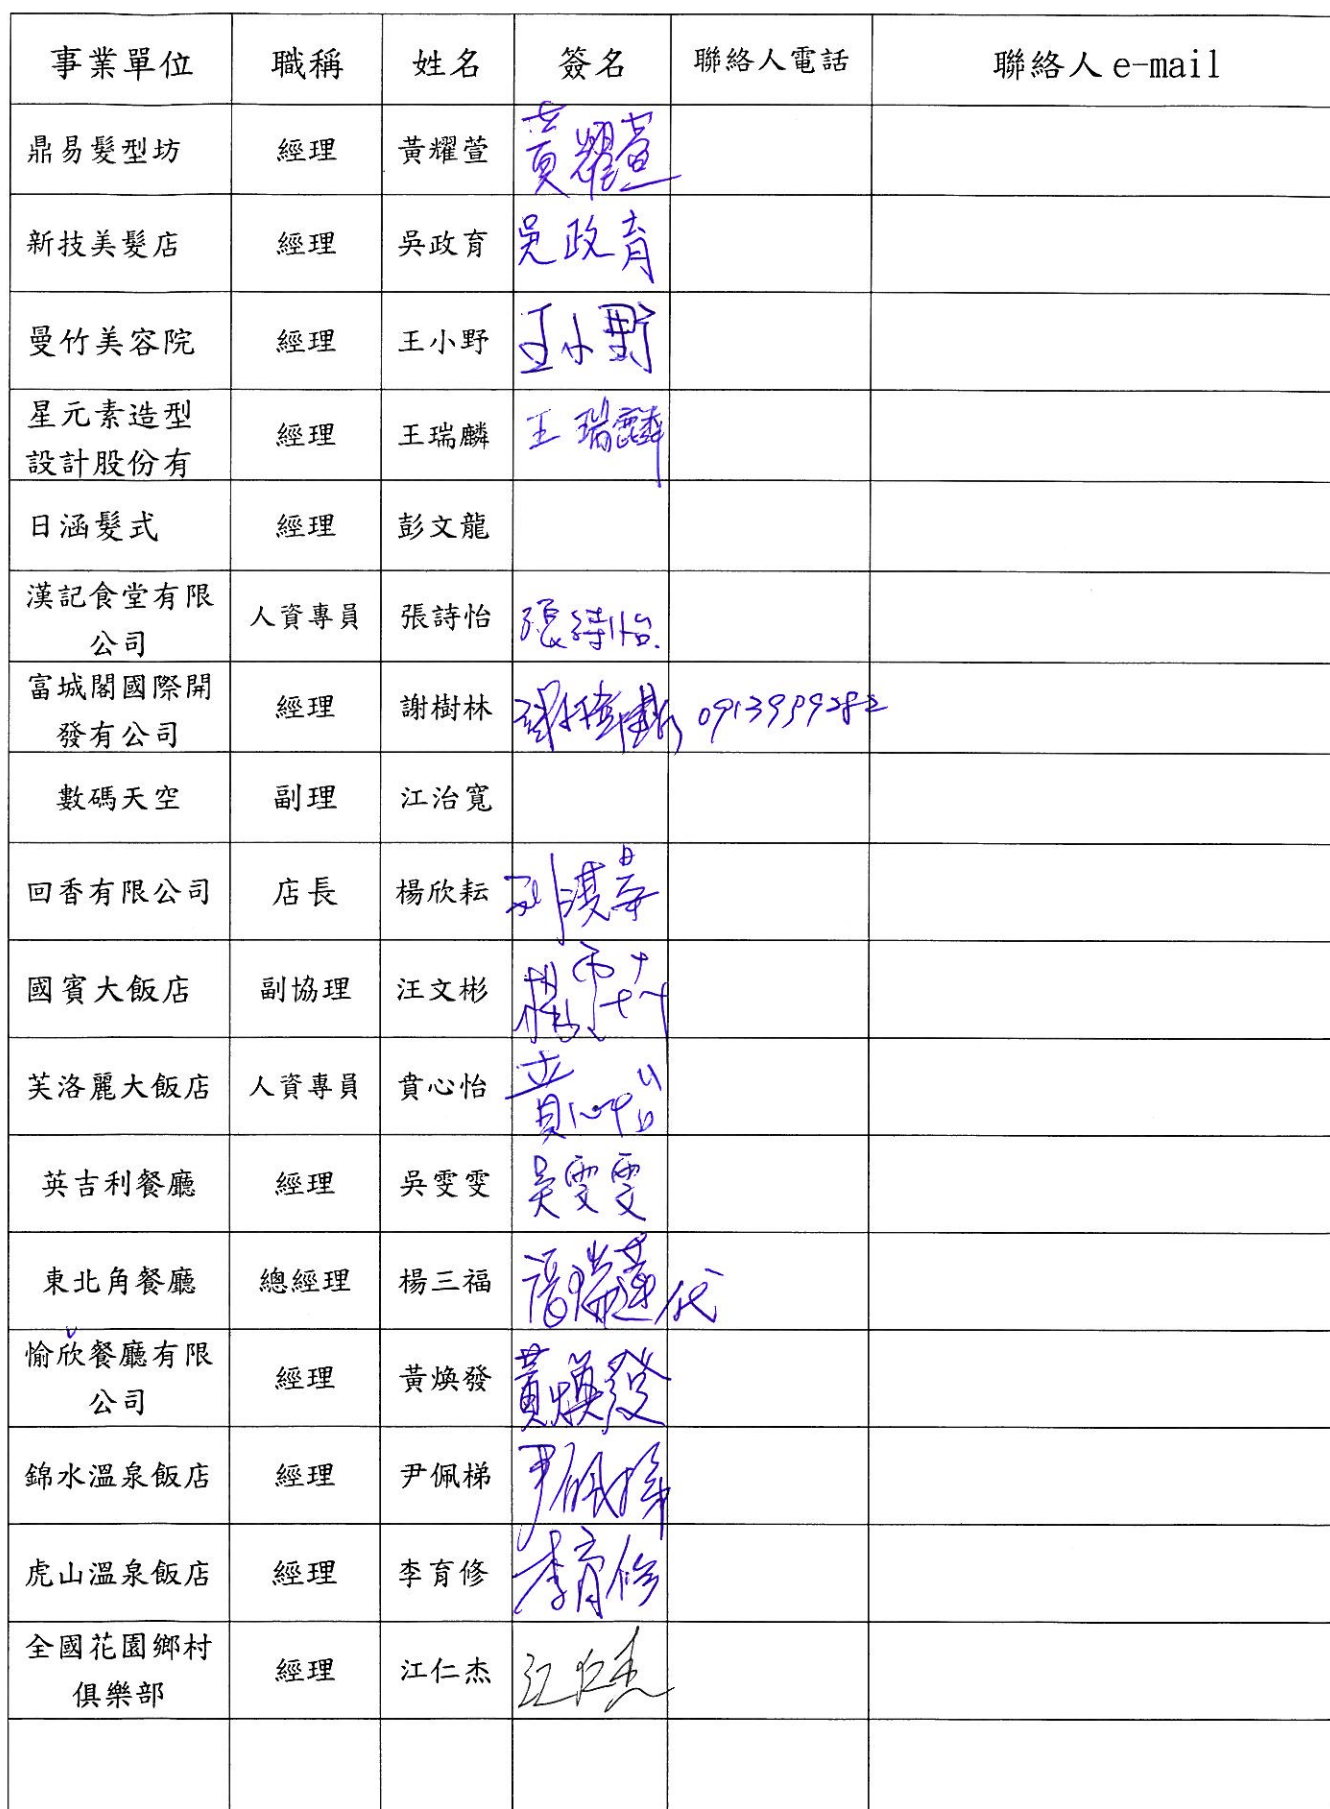 事業單位 職稱 姓名 簽名 聯絡人電話 聯絡人e-mail
鼎易髮型坊 經理 黃耀萱 黃耀萱
新技美髮店 經理 吳政育 吳政育
曼竹美容院 經理 王小野 王小野
星元素造型
設計股份有 經理 王瑞麟 王瑞麟
日涵髮式 經理 彭文龍
漢記食堂有限
公司 人資專員 張詩怡 張詩怡
富城閣國際開
發有公司 經理 謝樹林 謝樹林 0913999282
數碼天空 副理 江治寬
回香有限公司 店長 楊欣耘
國賓大飯店 副協理 汪文彬
芙洛麗大飯店 人資專員 賁心怡 賁心怡
英吉利餐廳 經理 吳雯雯 吳雯雯
東北角餐廳 總經理 楊三福 代
愉欣餐廳有限
公司 經理 黃煥發 黃煥發
錦水溫泉飯店 經理 尹佩梯 尹佩梯
虎山溫泉飯店 經理 李育修 李育修
全國花園鄉村
俱樂部 經理 江仁杰 江仁杰